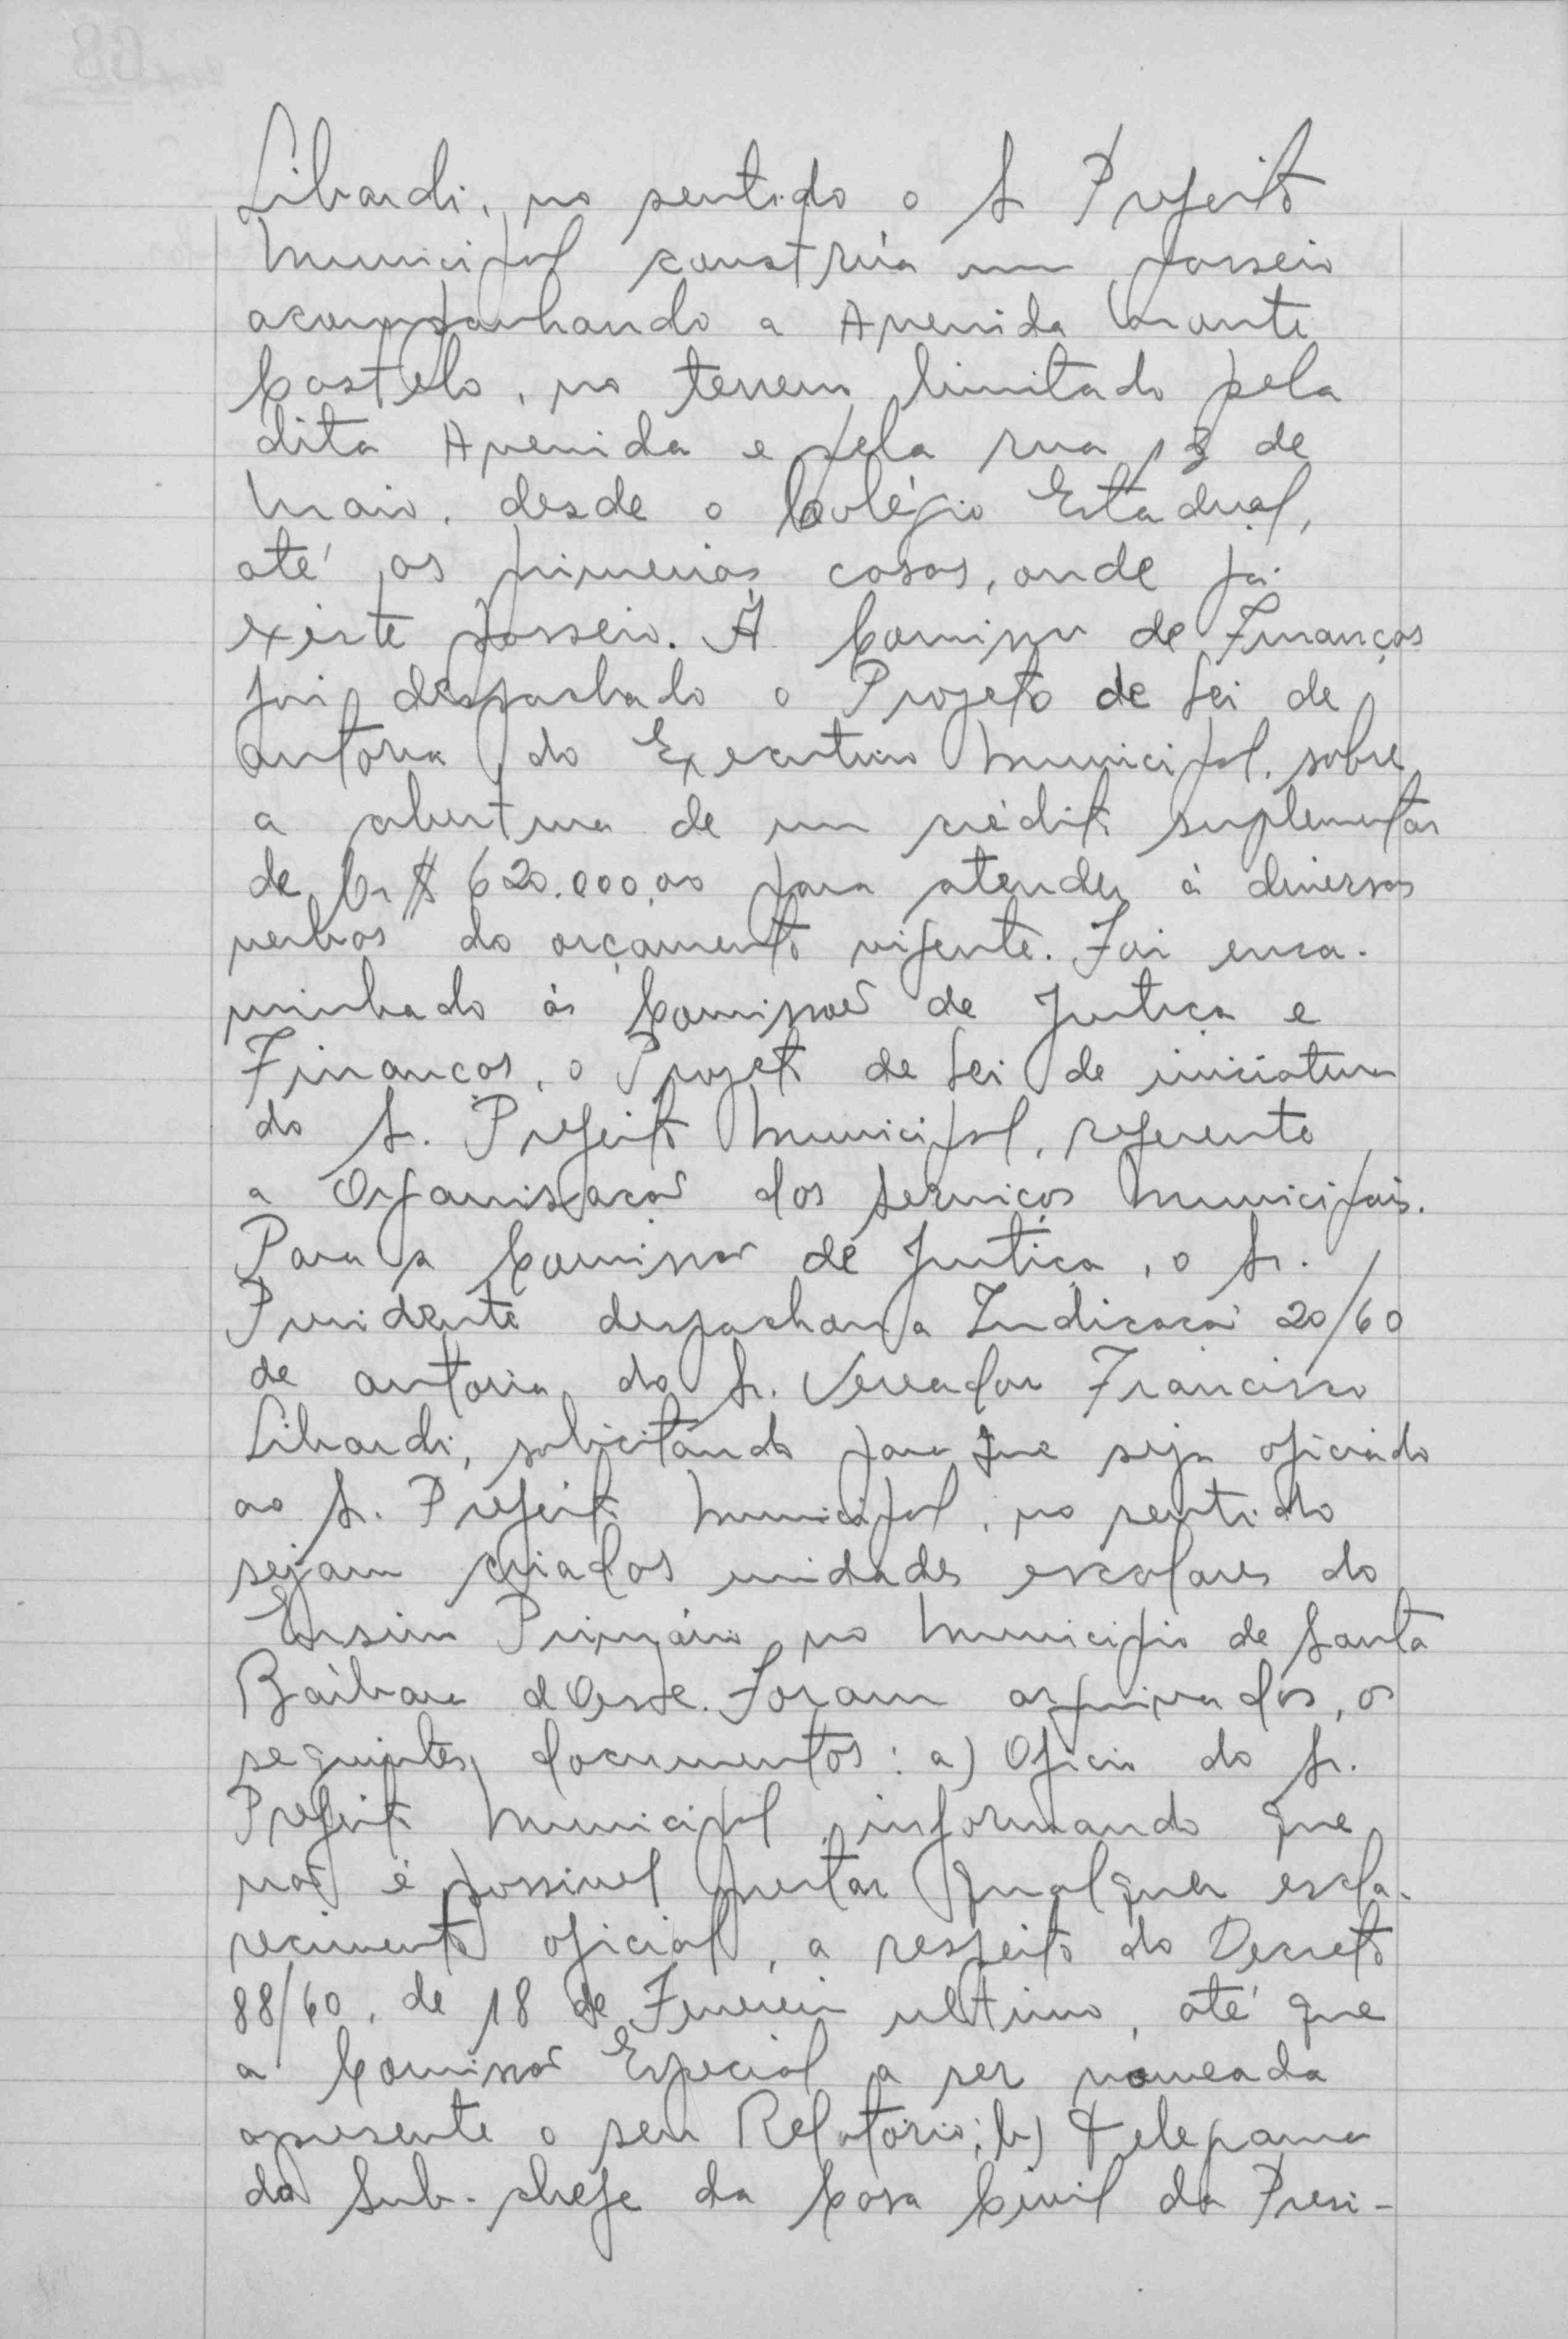 Libardi, no sentido o Sr Prefeito
Municipal construa um passeio
acompanhando a Avenida Monte
Castelo, no terreno limitado pela
dita Avenida e pela rua 13 de
Maio, desde o Colégio Estadual,
até as primeiras casas, onde já
existe passeio. À Comissão de Finanças
foi despachado o Projeto de Lei de
autoria do Executivo Municipal, sobre
a abertura de um crédito suplementar
de Cr$ 620.000,00 para atender à diversas
verbas do orçamento vigente. Foi enca-
minhado às Comissões de Justiça e
Finanças, o Projeto de Lei de iniciativa
do Sr. Prefeito Municipal, referente
a Organisação dos Serviços Municipais.
Para a Comissão de Justiça, o Sr.
Presidente despachou a Indicação 20/60
de autoria do Sr. Vereador Francisco
Libardi, solicitando para que seja oficiado
ao Sr. Prefeito Municipal, no sentido
sejam criadas unidades escolares do
Ensino Primário no Municipio de Santa
Bárbara d'Oeste. Foram arquivados, os
seguintes documentos: a) Oficio do Sr.
Prefeito Municipal, informando que
não é possivel prestar qualquer escla-
recimento oficial, a respeito do Decreto
88/60, de 18 de Fevereiro ultimo, até que
a Comissão Especial a ser nomeada
apresente o seu Relatório; b) Telegrama
do Sub-chefe da Casa Civil da Presi-